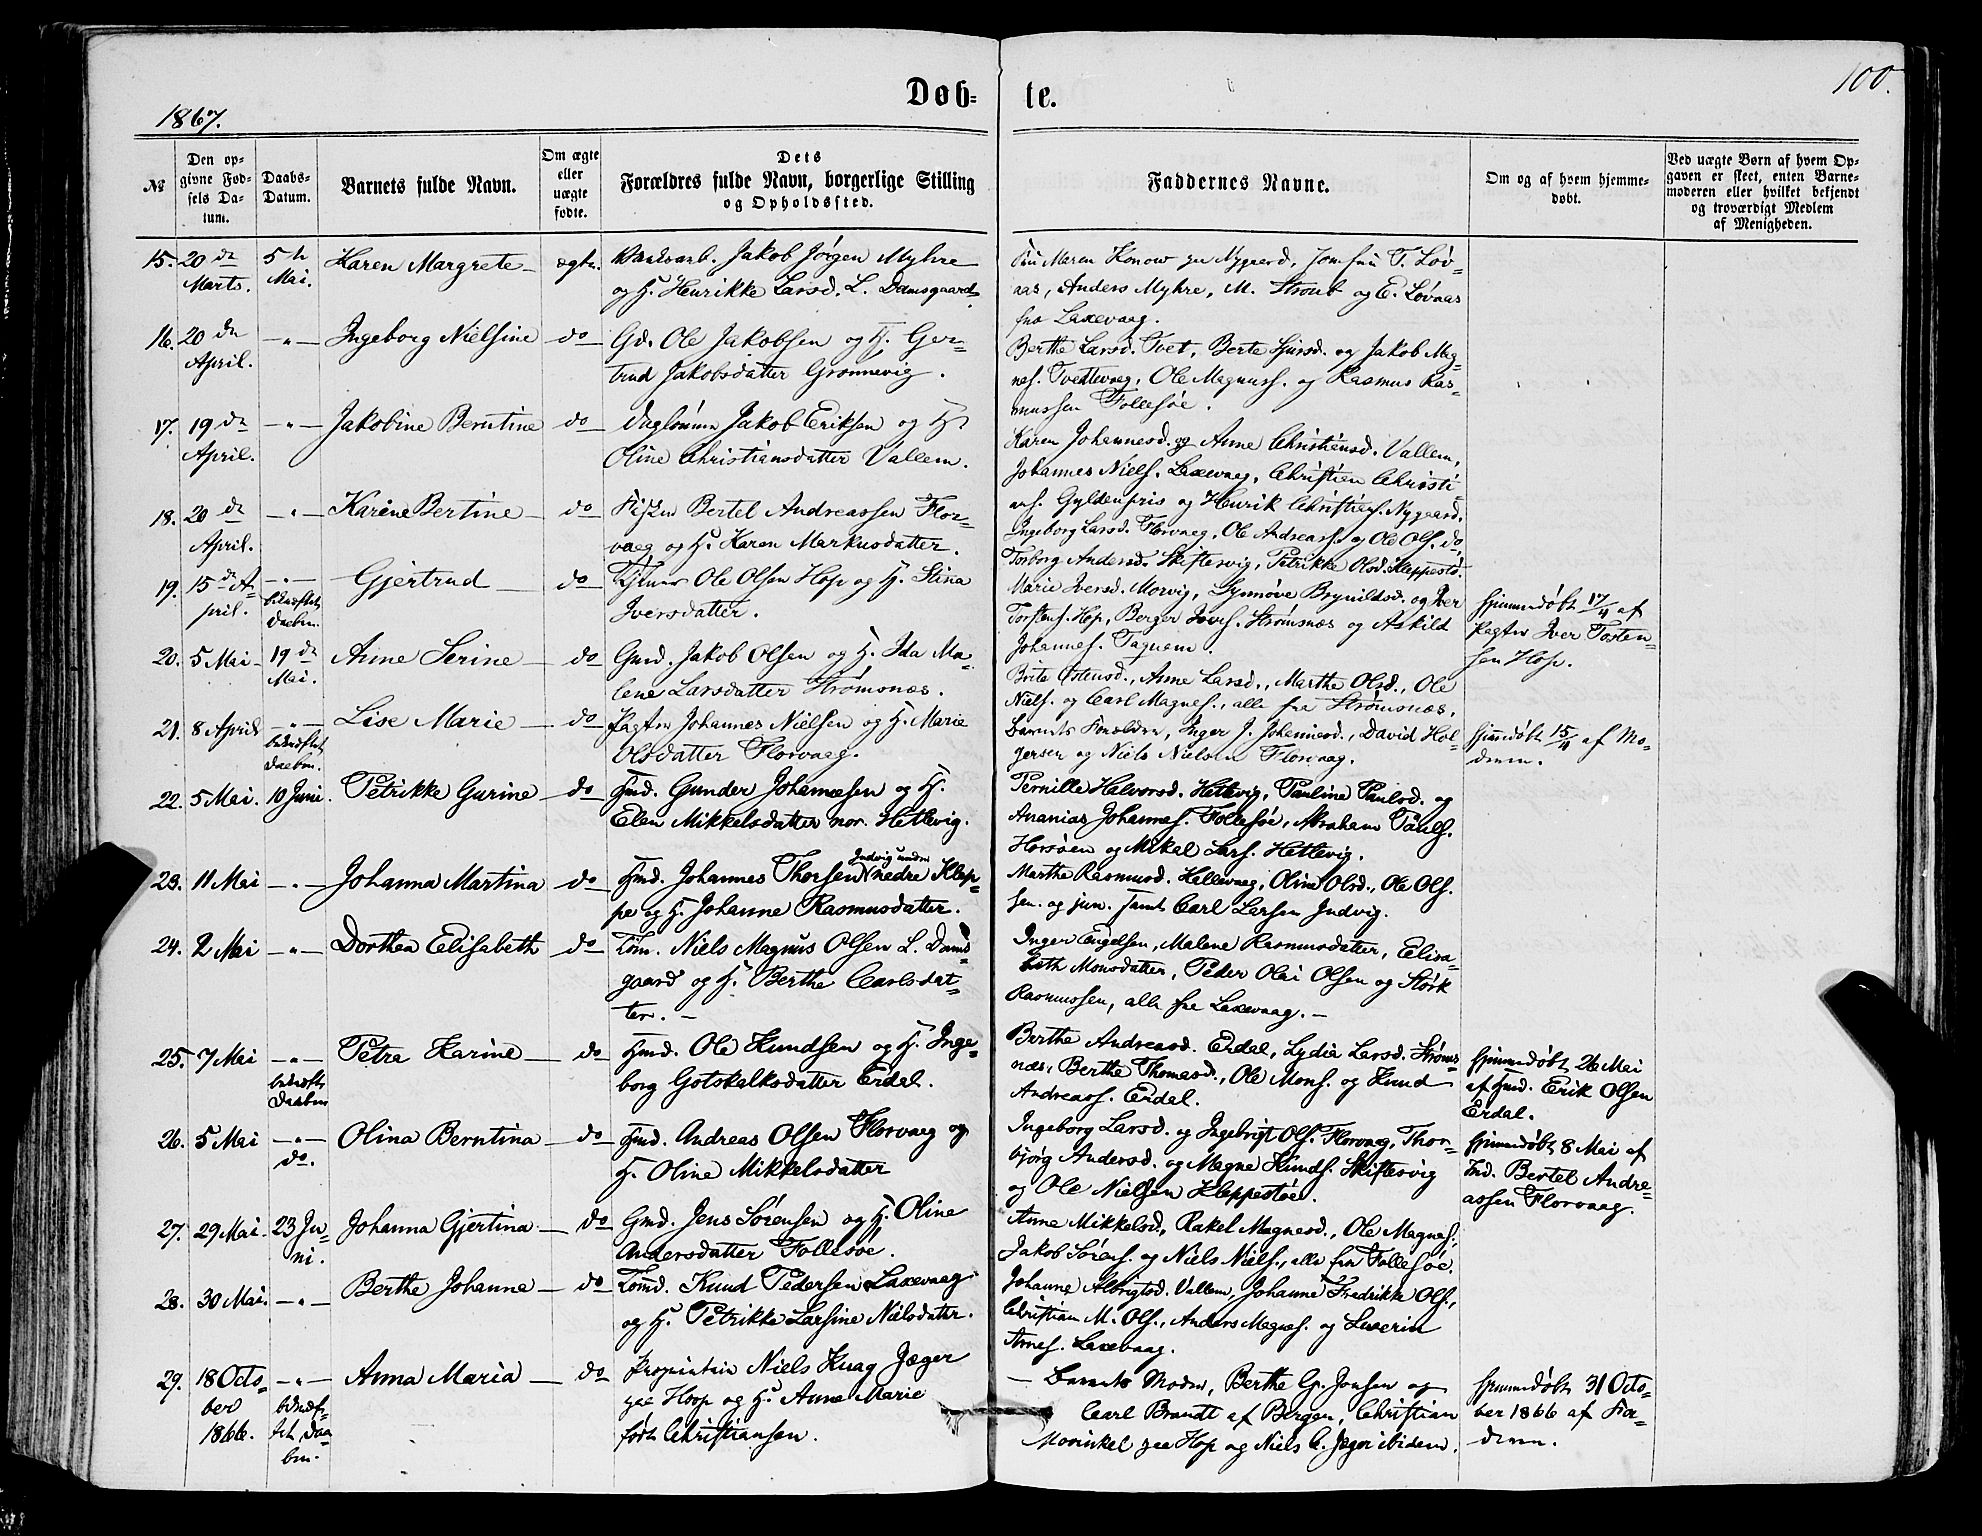 100.
Døb- te.
1867.
№
Den op-
givne Fød-
sels Da-
tum.
Daabs-
Datum.
Barnets fulde Navn.
Om ægte
eller
uægte
fødte.
Dets
Forældres fulde Navn, borgerlige Stilling
og Opholdssted.
Faddernes Navne.
Om og af hvem hjemme-
døbt.
Ved uægte Børn af hvem Op-
gaven er skeet, enten Barne-
moderen eller hvilket bekjendt
og troværdigt Medlem
af Menigheden.
15. 20de Marts. 5te Mai. Karen Margrete ægte. Jakob Jørgen Myhre
og H. Henrikke Larsd. L. Damsgaard
Maren Konow Nygaard, Jomfru T. Løv-
aas, Anders Myhre, M. Stroub og E. Løvaas
fra Laxevaag.
16. 20de April. -"- Ingeborg Nielsine do Gd. Ole Jakobsen og H. Ger-
trud Jakobsdatter Grønnevig.
Berthe Larsd. Tvet, Berte Sjursd. og Jakob Mag-
nes. Tvedtevaag, Ole Magnuss. og Rasmus Ras-
mussen Follesøe.
17. 19de April. -"- Jakobine Berntine do Daglønner Jakob Eriksen og H.
Oline Christiansdatter Vallem.
Karen Johannesd. og Anne Christensd. Vallem,
Johannes Niels. Laxevaag, Christien Christi-
ans. Gyldenpris og Henrik Christians. Nygaard.
18. 20de April. -"- Karine Bertine do Fisker Bertel Andreassen Flor-
vaag og H. Karen Markusdatter.
Ingeborg Larsd. Florvaag, Ole Andreass. og Ole Ols. do,
Torborg Andersd. Skiftesvig, Petrikke Olsd. Kleppestø.
19. 15de April. -"- bekræftet Daaben. Gjertrud do Ole Olsen Hop og H. Stina
Iversdatter.
Marie Iversd. Morvig, Synnøve Brynildsd. og Iver
Torstens. Hop, Berger Ivers. Strømsnæs og Askild
Johannes. Tagnem.
hjemmedøbt 17/4 af
Pagter Iver Tosten-
sen Hop.
20. 5 Mai 19de Mai. Anne Serine do Gmd. Jakob Olsen og H. Ida Ma-
lene Larsdatter Strømsnæs.
Brite Østensd., Anne Larsd., Marthe Olsd., Ole
Niels. og Carl Magnes., alle fra Strømsnæs.
21. 8 April -"- bekræftet Daaben. Lise Marie do Pagter Johannes Nielsen og H. Marie
Olsdatter Florvaag.
Barnets Forældre, Inger J. Johannesd., David Hol-
gersen og Niels Nielsen Florvaag.
hjemmedøbt 15/4 af Mo-
deren.
22. 5 Mai. 10 Juni. Petrikke Gurine do Hmd. Gunder Johannesen og H.
Elen Mikkelsdatter nor. Hetlevig.
Pernille Halvorsd. Hetlevig, Pauline Paulsd. og
Ananias Johannes. Follesøe, Abraham Pauls.
Horsøen og Mikal Lars. Hetlevig.
23. 11 Mai -"- Johanna Martina do Hmd. Johannes Thorsen Indvig under nedre Klep-
pe og H. Johanne Rasmusdatter.
Marthe Rasmusd. Hellevaag, Oline Olsd., Ole Ols.
sen. og jun. samt Carl Larsen Indvig.
24. 2 Mai -"- Dorthea Elisabeth do Tøm. Niels Magnus Olsen L. Dams-
gaard og H. Berthe Carlsdat-
ter.
Inger Engelsen, Malene Rasmusdatter, Elisa-
beth Monsdatter, Peder Olai Olsen og Størk
Rasmussen, alle fra Laxevaag.
25. 7 Mai -"- bekræftet Daaben Petra Karine do Hmd. Ole Knudsen og H. Inge-
borg Gotskalksdatter Erdal.
Berthe Andreasd. Erdal, Lydia Larsd. Strøms-
næs, Berthe Thomasd., Ole Mons. og Knud
Andreas. Erdal.
hjemmedøbt 26 Mai
af Hmd. Erik Olsen
Erdal.
26. 5 Mai -"- do. Olina Berntina do Hmd. Andreas Olsen Florvaag og
H. Oline Mikkelsdatter
Ingeborg Larsd. og Ingebrigt Ols. Florvaag, Thor-
bjørg Andersd. og Magne Knuds. Skiftesvig
og Ole Nielsen Kleppestøe.
hjemmedøbt 8 Mai af
Hmd. Bertel Andre-
assen Florvaag.
27. 29 Mai. 23 Juni. Johanna Gjertina do Gmd. Jens Sørensen og H. Oline
Andersdatter Follesøe.
Anne Mikkelsd, Rakel Magnesd., Ole Magnes.,
Jakob Sørens. og Niels Niels., alle fra Follesøe.
28. 30 Mai. -"- Berthe Johanne do Tømd. Knud Pedersen Laxevaag
og H. Petrikke Larsine Nielsdatter.
Johanne Albrigtsd. Vallem, Johanne Fredrikke Ols.,
Christian M. Ols., Anders Magnes. og Severin
Arnes. Laxevaag.
29. 18 October 1866. -"- bekræftet Daaben. Anna Maria do Proprietær Niels Knag Jæger
paa Hoop og H. Anne Marie
født Christiansen.
Barnets Moder, Berthe G. Jansen og
Carl Brandt af Bergen, Christian
Mowinkel paa Hop og Niels C. Jæger ibidem.
hjemmedøbt 31 Octo-
ber 1866 af Fa-
deren.